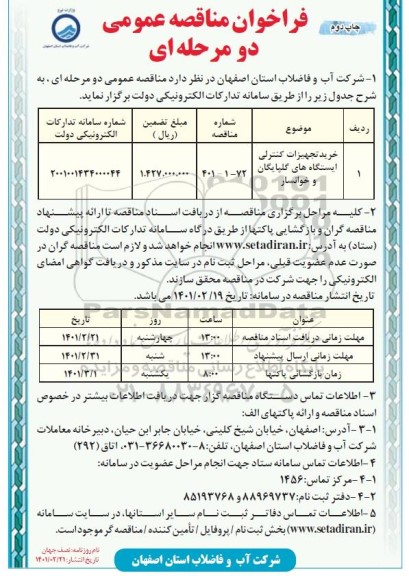 چاپ دوم
فراخوان مناقصه عمومی
دو مرحله ای
شرکت آب و فاضلاب استان اصفهان
۱- شرکت آب و فاضلاب استان اصفهان در نظر دارد مناقصه عمومی دو مرحله ای ، به
شرح جدول زیر را از طریق سامانه تدارکات الکترونیکی دولت برگزار نماید.
ردیف موضوع شماره مناقصه مبلغ تضمین (ریال) شماره سامانه تدارکات الکترونیکی دولت
۱ خرید تجهیزات کنترلی ایستگاه های گلپایگان و خوانسار ۷۲-۱-۴۰۱ ۱.۴۲۷.۰۰۰.۰۰۰ ۲۰۰۱۰۰۱۴۳۴۰۰۰۰۴۴
۲- کلیه مراحل برگزاری مناقصه از دریافت اسناد مناقصه تا ارائه پیشنهاد
مناقصه گران و بازگشایی پاکتها از طریق درگاه سامانه تدارکات الکترونیکی دولت
(ستاد) به آدرس: www.setadiran.ir انجام خواهد شد و لازم است مناقصه گران در
صورت عدم عضویت قبلی، مراحل ثبت نام در سایت مذکور و دریافت گواهی امضای
الکترونیکی را جهت شرکت در مناقصه محقق سازند.
تاریخ انتشار مناقصه در سامانه: تاریخ ۱۴۰۱/۰۲/۱۹ می باشد.
ParsNamadData
عنوان ساعت روز تاریخ
مهلت زمانی دریافت اسناد مناقصه ۱۳:۰۰ چهارشنبه ۱۴۰۱/۲/۲۱
مهلت زمانی ارسال پیشنهاد ۱۳:۰۰ شنبه ۱۴۰۱/۲/۳۱
زمان بازگشائی پاکتها ۸:۰۰ یکشنبه ۱۴۰۱/۳/۱
۳- اطلاعات تماس دستگاه مناقصه گزار جهت دریافت اطلاعات بیشتر در خصوص
اسناد مناقصه و ارائه پاکتهای الف:
۳-۱- آدرس: اصفهان، خیابان شیخ کلینی، خیابان جابر ابن حیان، دبیرخانه معاملات
شرکت آب و فاضلاب استان اصفهان، تلفن: ۸-۳۶۶۸۰۰۳۰-۰۳۱ اتاق (۲۹۲)
۴- اطلاعات تماس سامانه ستاد جهت انجام مراحل عضویت در سامانه:
۴-۱- مرکز تماس: ۱۴۵۶
۴-۲- دفتر ثبت نام: ۸۸۹۶۹۷۳۷ و ۸۵۱۹۳۷۶۸
۵- اطلاعات تماس دفاتر ثبت نام سایر استانها، در سایت سامانه
(www.setadiran.ir) بخش ثبت نام / پروفایل / تأمین کننده / مناقصه گر موجود است.
شرکت آب و فاضلاب استان اصفهان
نام روزنامه: نصف جهان
تاریخ انتشار: ۱۴۰۱/۰۲/۲۱